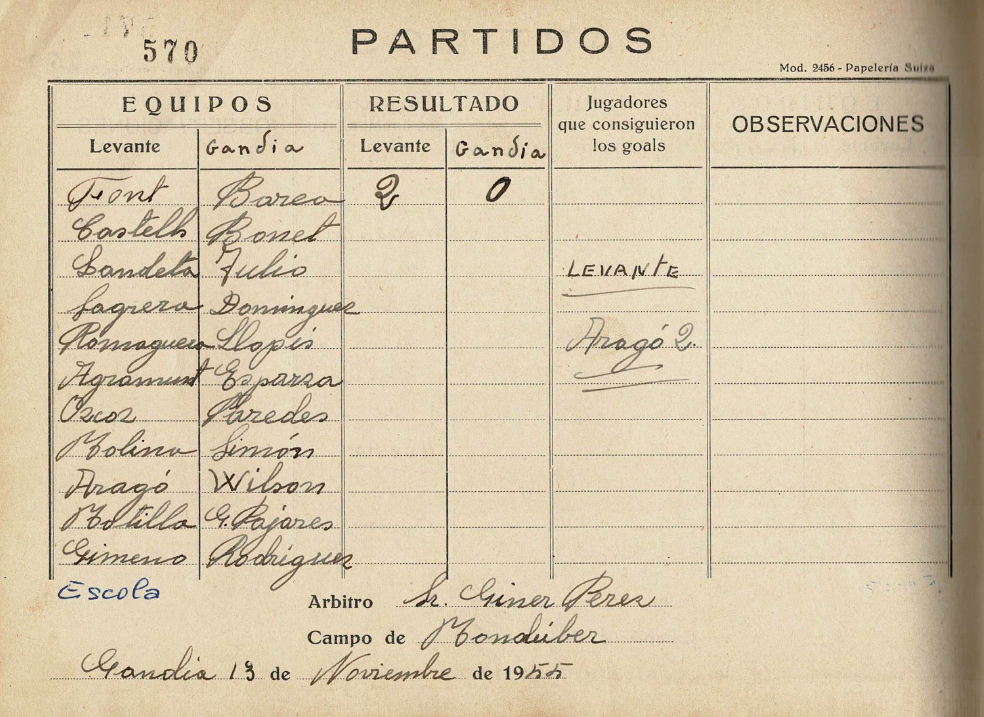 570
PARTIDOS
Mod. 2456 - Papelería Suiza
EQUIPOS RESULTADO Jugadores que consiguieron los goals OBSERVACIONES
Levante Gandia Levante Gandia
Font Barea 2 0
Castells Bonet
Sandeta Julio LEVANTE
Sagrera Dominguez
Romaguera Llopis Aragó 2.
Agramunt Esparza
Oscoz Paredes
Molina Simón
Aragó Wilson
Motilla G. Pajares
Gimeno Rodriguez
Escola
Arbitro Sr. Giner Perez
Campo de Mondúber
Gandia 13 de Noviembre de 1955